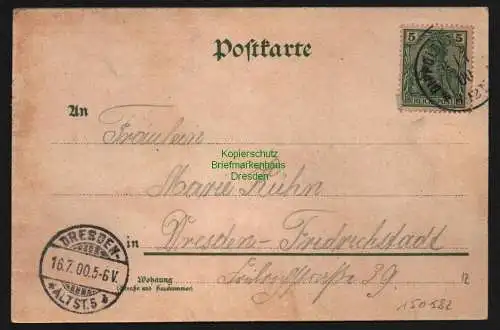 Postkarte
5
5
REICHSPOST
An
Fräulein
Kopierschutz
Briefmarkenhaus
Dresden
Marie Kühn
in Dresden-Friedrichstadt
Wohnung
(Straße und Hausnummer)
39.
DRESDEN-
16.7.00.5-6V.
*ALTST.5
12
150582